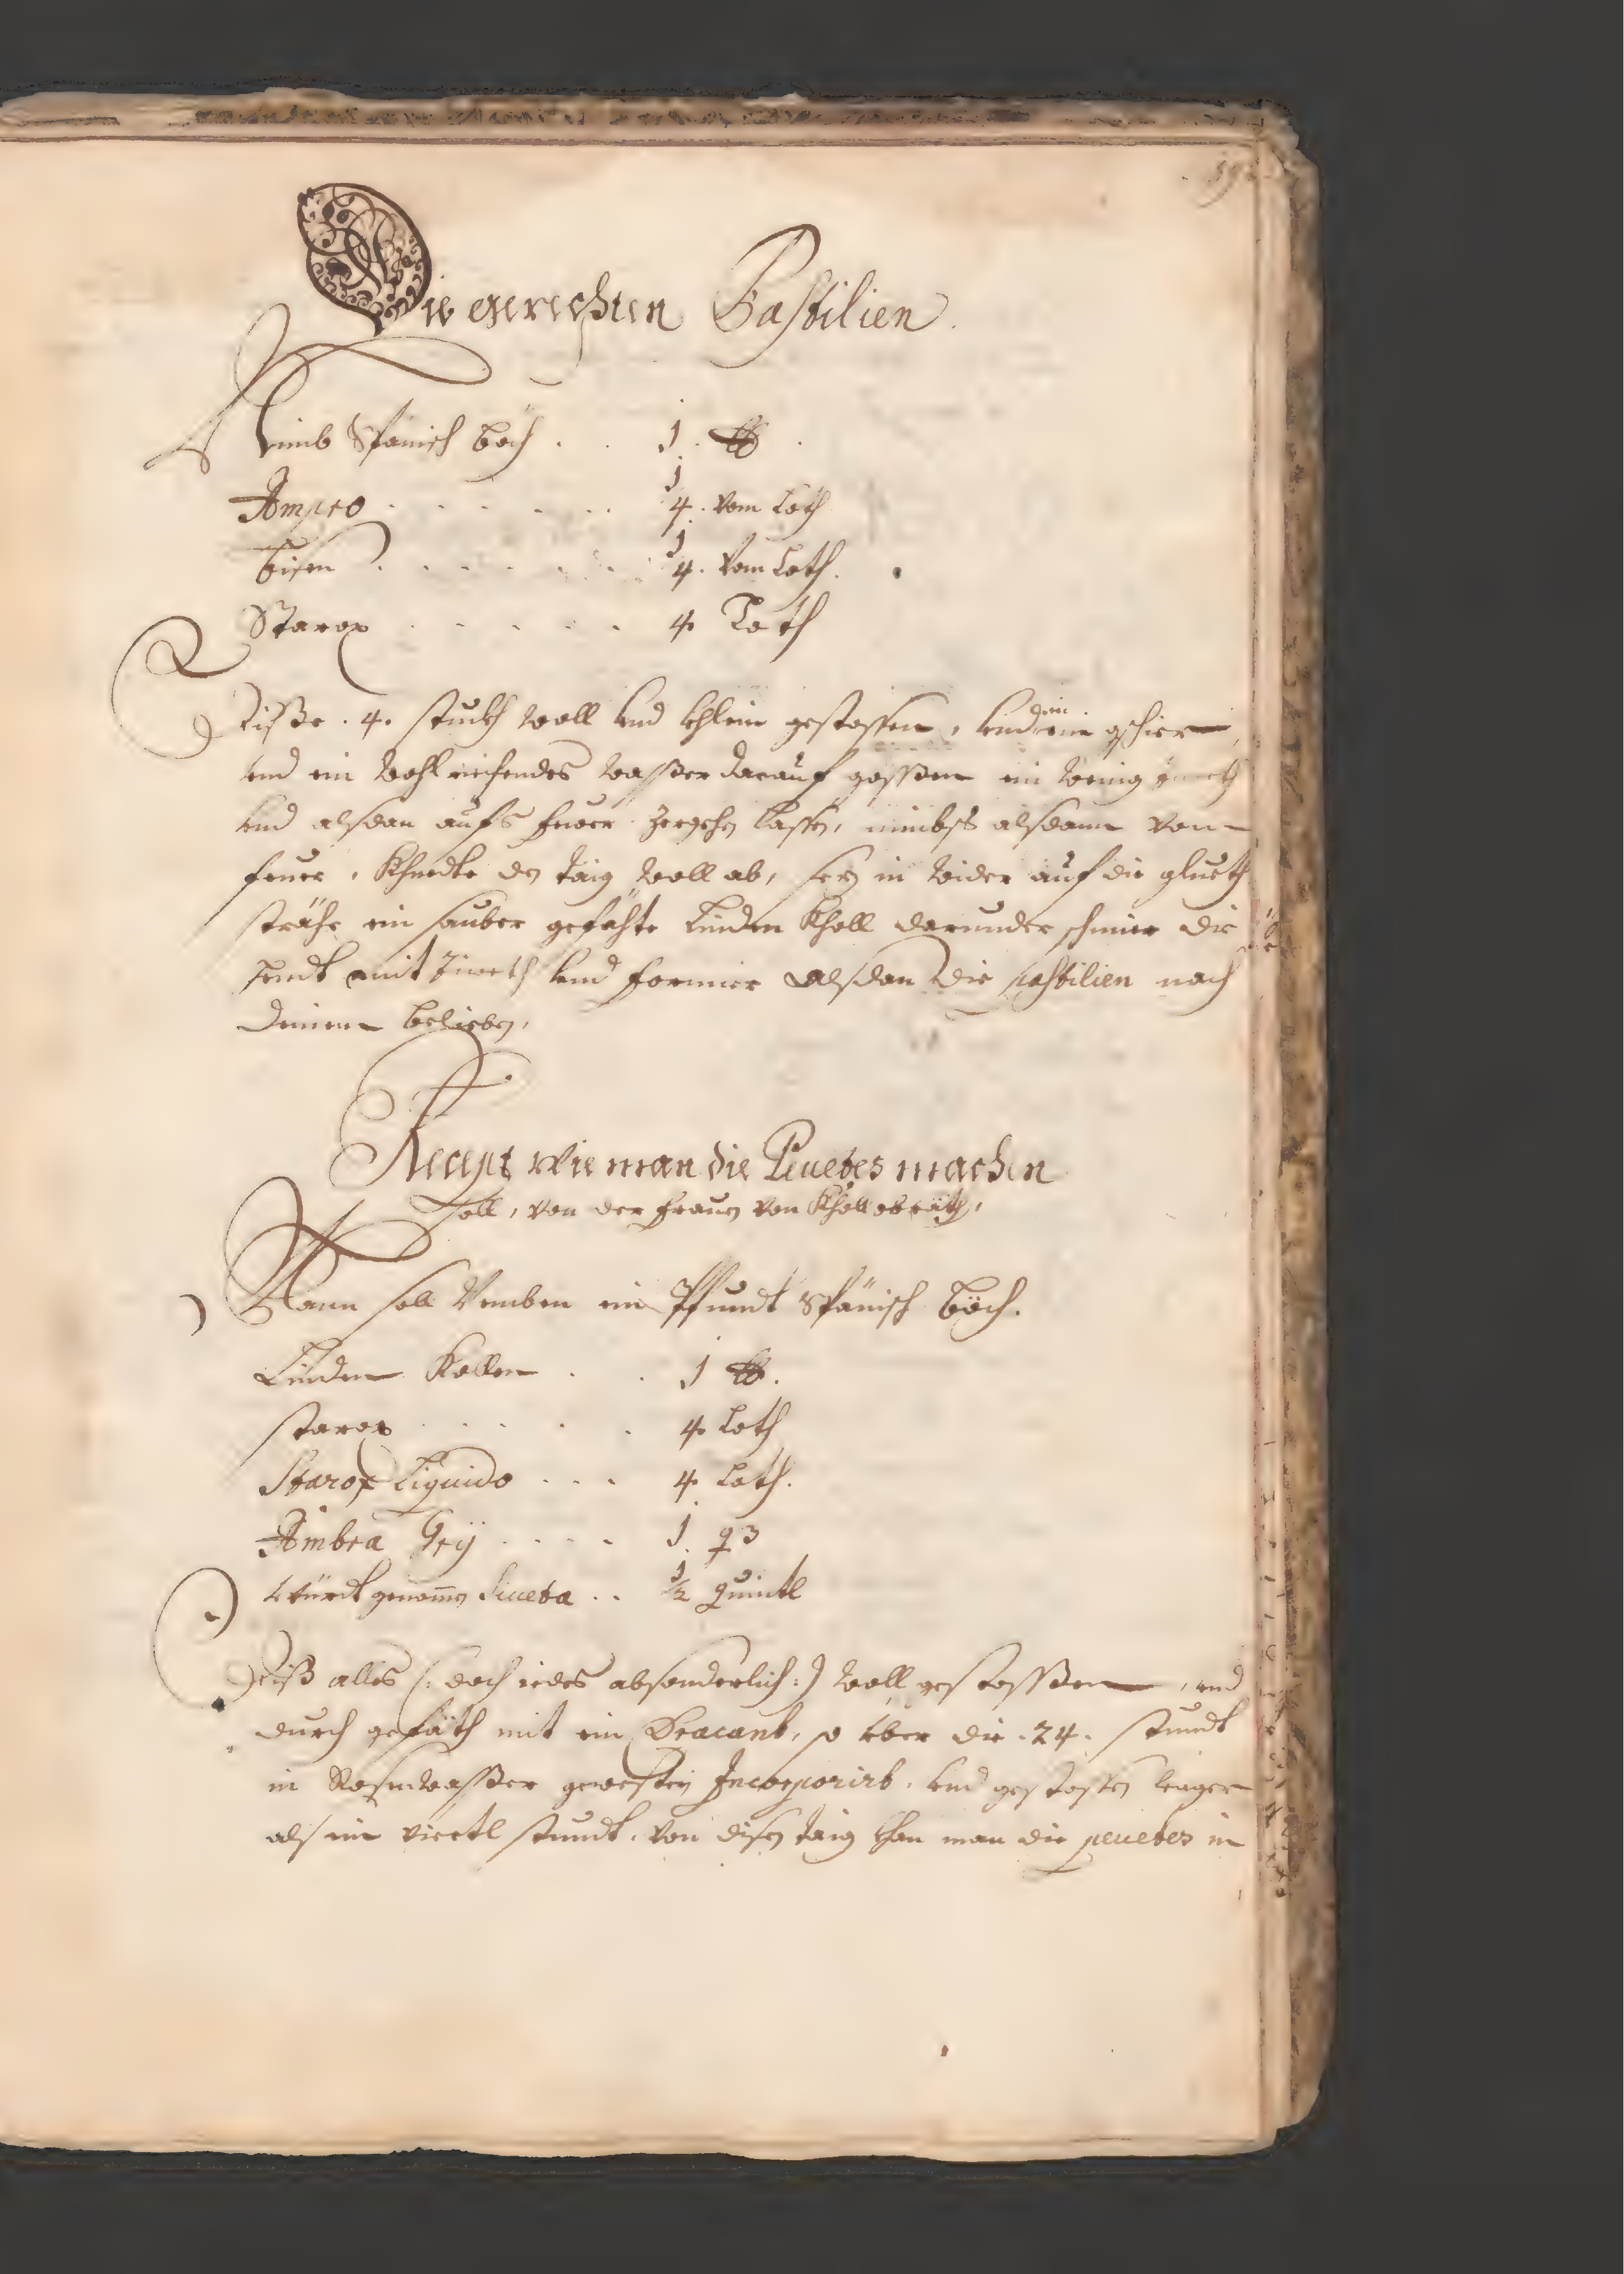 Die gerechten Pastilien.
Nimb Spänisch böch . . 1 ℔ .
Ampro . . . . . . 1/4 . vom Loth
bisen . . . . . . 1/4 . vom Loth.
Starox . . . . . 4 Loth
Disße . 4 . stuckh woll vnd khlein gestossen, vnd in ein gschier,
vnd ein wohl riechendes waßer darauf goßsen ein wenig
vnd alsdan aufs feuer zergehen lassen, nimbs alsdann von
feuer, Khnedte den taig woll ab, sez in wider auf die glueth
strähe ein sauber gefähte Linden Kholl darunder schmier die
hendt mit Ziweth vnd formier alsdan die pastilien nach
deinem belieben,
Recept wie man die Peuetes machen
soll, von der frauen von Khollobräth,
Mann soll Nemben ein Pfundt Spänisch böch.
Linden Kollen . . 1 ℔.
starox . . . . . 4 Loth
Starox Liquido . . . 4 Loth.
Ambra Grÿ . . . . 1 q3
würckh genomen Siueta . . 1/2 quintl
Diß alles (: doch iedes absonderlich :) woll gestosßen, vnd
durch gefäth mit ein Dracant, so über die . 24 . stundt
in Rosenwaßer gewesten Incorporirt, vnd gestossen lenger
als ein viertl stundt, von disen taig khan man die peuetes in